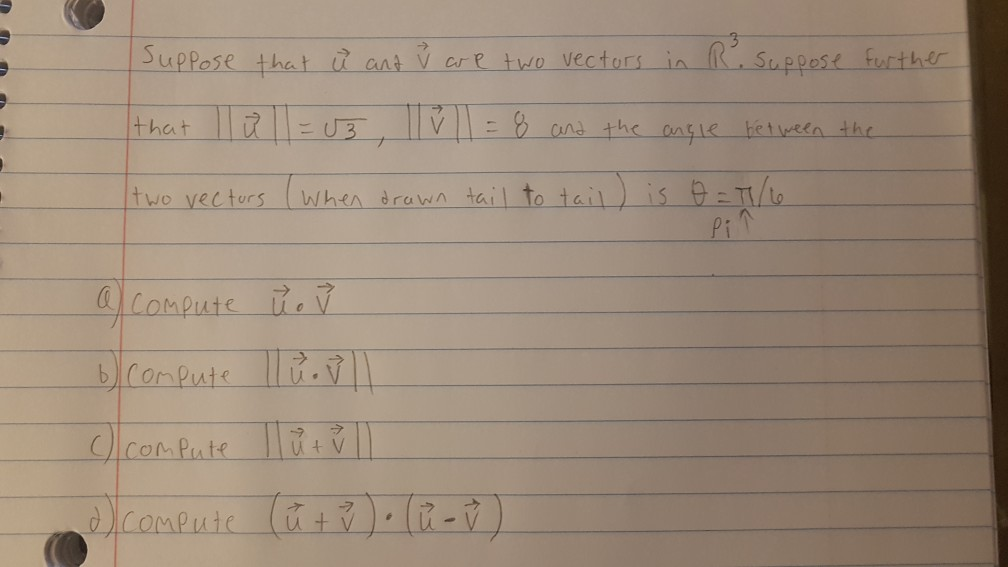 Suppose that u⃗ and v⃗ are two vectors in ℝ³. Suppose further
that ||u⃗|| = √3, ||v⃗|| = 8 and the angle between the
two vectors (when drawn tail to tail) is θ = π/6
Pi ↑
a) compute u⃗ • v⃗
b) compute ||u⃗ • v⃗||
c) compute ||u⃗ + v⃗||
d) compute (u⃗ + v⃗) • (u⃗ - v⃗)